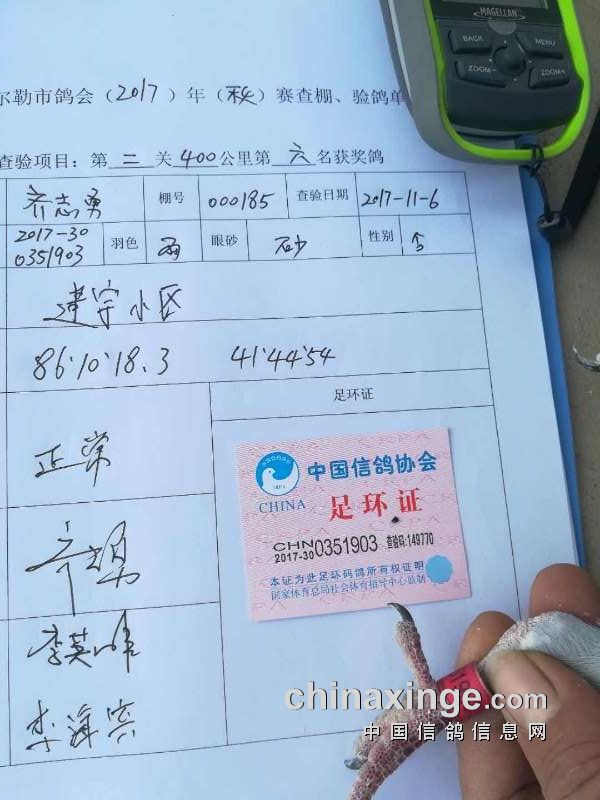 MAGELLAN
BACK MENU
ZOOM- ZOOM+
尔勒市鸽会（2017）年（秋）赛查棚、验鸽单
查验项目：第二关400公里第六名获奖鸽
齐志勇 棚号 000185 查验日期 2017-11-6
2017-30
0351903 羽色 雨 眼砂 砂 性别
建宇小区
86·10·18.3 41·44·54
足环证
正常
中国信鸽协会
CHINA
足环证
CHN
2017-30 0351903 查验码:149770
本证为此足环码鸽所有权证明
国家体育总局社会体育指导中心监制
李英
李海宾
chinaxinge.com
中国信鸽信息网